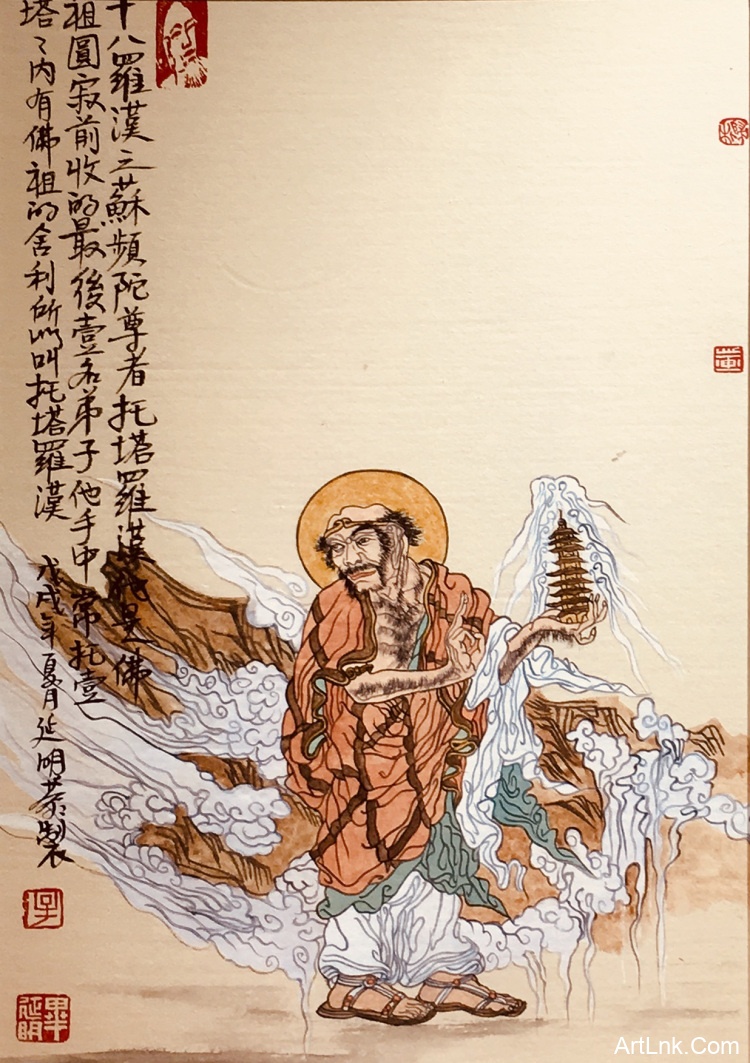 十八羅漢之蘇頻陀尊者托塔羅漢他是佛
祖圓寂前收的最後壹名弟子他手中常托壹
塔〻内有佛祖的舍利所以叫托塔羅漢
戊戌年夏月延明恭製
畢延明
ArtLnk.Com